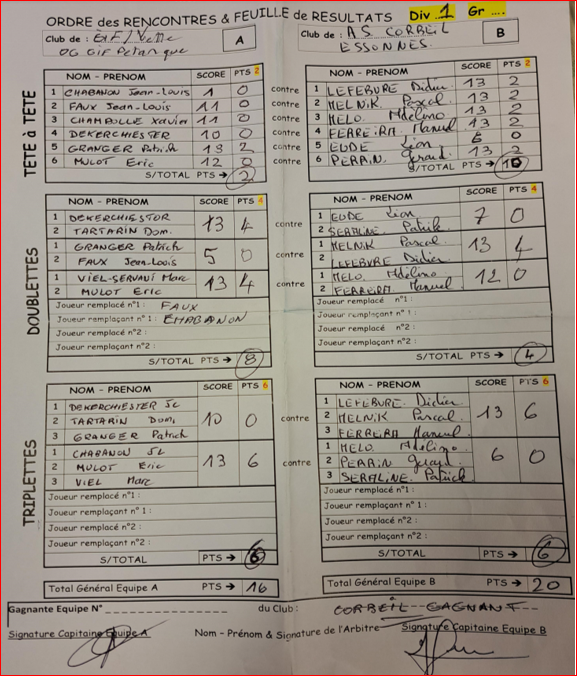 ORDRE des RENCONTRES & FEUILLE de RESULTATS Div 1 Gr ....
Club de : Gif/Yvette A Club de : A.S. CORBEIL B
OG Gif Petanque ESSONNES
TETE à TETE
NOM - PRENOM SCORE PTS 2 NOM - PRENOM SCORE PTS 2
1 CHABANON Jean-Louis 1 0 contre 1 LEFEBURE Didier 13 2
2 FAUX Jean-Louis 11 0 contre 2 MELNIK Pascal 13 2
3 CHAMPOLLE Xavier 11 0 contre 3 MELO Mdelino 13 2
4 DEKERCHIESTER 10 0 contre 4 FERREIRA Manuel 13 2
5 GRANGER Patrick 13 2 contre 5 EUDE Lion 6 0
6 MULOT Eric 12 0 contre 6 PERRIN Gerard 13 2
S/TOTAL PTS → 2 S/TOTAL PTS → 10
DOUBLETTES
NOM - PRENOM SCORE PTS 4 NOM - PRENOM SCORE PTS 4
1 DEKERCHIESTOR 13 4 contre 1 EUDE Lion 7 0
2 TARTARIN Dom. 2 SERALINE Patrik
1 GRANGER Patrick 5 0 contre 1 MELNIK Pascal 13 4
2 FAUX Jean-Louis 2 LEFEBVRE Didier
1 VIEL-SERVANI Marc 13 4 contre 1 MELO Mdelino 12 0
2 MULOT Eric 2 FERREIRA Manuel
Joueur remplacé n°1 : FAUX Joueur remplacé n°1 :
Joueur remplaçant n°1 : CHABANON Joueur remplaçant n°1 :
Joueur remplacé n°2 : Joueur remplacé n°2 :
Joueur remplaçant n°2 : Joueur remplaçant n°2 :
S/TOTAL PTS → 8 S/TOTAL PTS → 4
TRIPLETTES
NOM - PRENOM SCORE PTS 6 NOM - PRENOM SCORE PTS 6
1 DEKERCHIESTER JL 1 LEFEBURE Didier
2 TARTARIN Dom, 10 0 contre 2 MELNIK Pascal 13 6
3 GRANGER Patrick 3 FERREIRA Manuel
1 CHABANON JL 1 MELO Mdelino
2 MULOT Eric 13 6 contre 2 PERRIN Gerard 6 0
3 VIEL Marc 3 SERALINE Patrick
Joueur remplacé n°1 : Joueur remplacé n°1 :
Joueur remplaçant n°1 : Joueur remplaçant n°1 :
Joueur remplacé n°2 : Joueur remplacé n°2 :
Joueur remplaçant n°2 : Joueur remplaçant n°2 :
S/TOTAL PTS → 6 S/TOTAL PTS → 6
Total Général Equipe A PTS → 16 Total Général Equipe B PTS → 20
Gagnante Equipe N° du Club : CORBEIL GAGNANT
Signature Capitaine Equipe A Nom - Prénom & Signature de l'Arbitre Signature Capitaine Equipe B